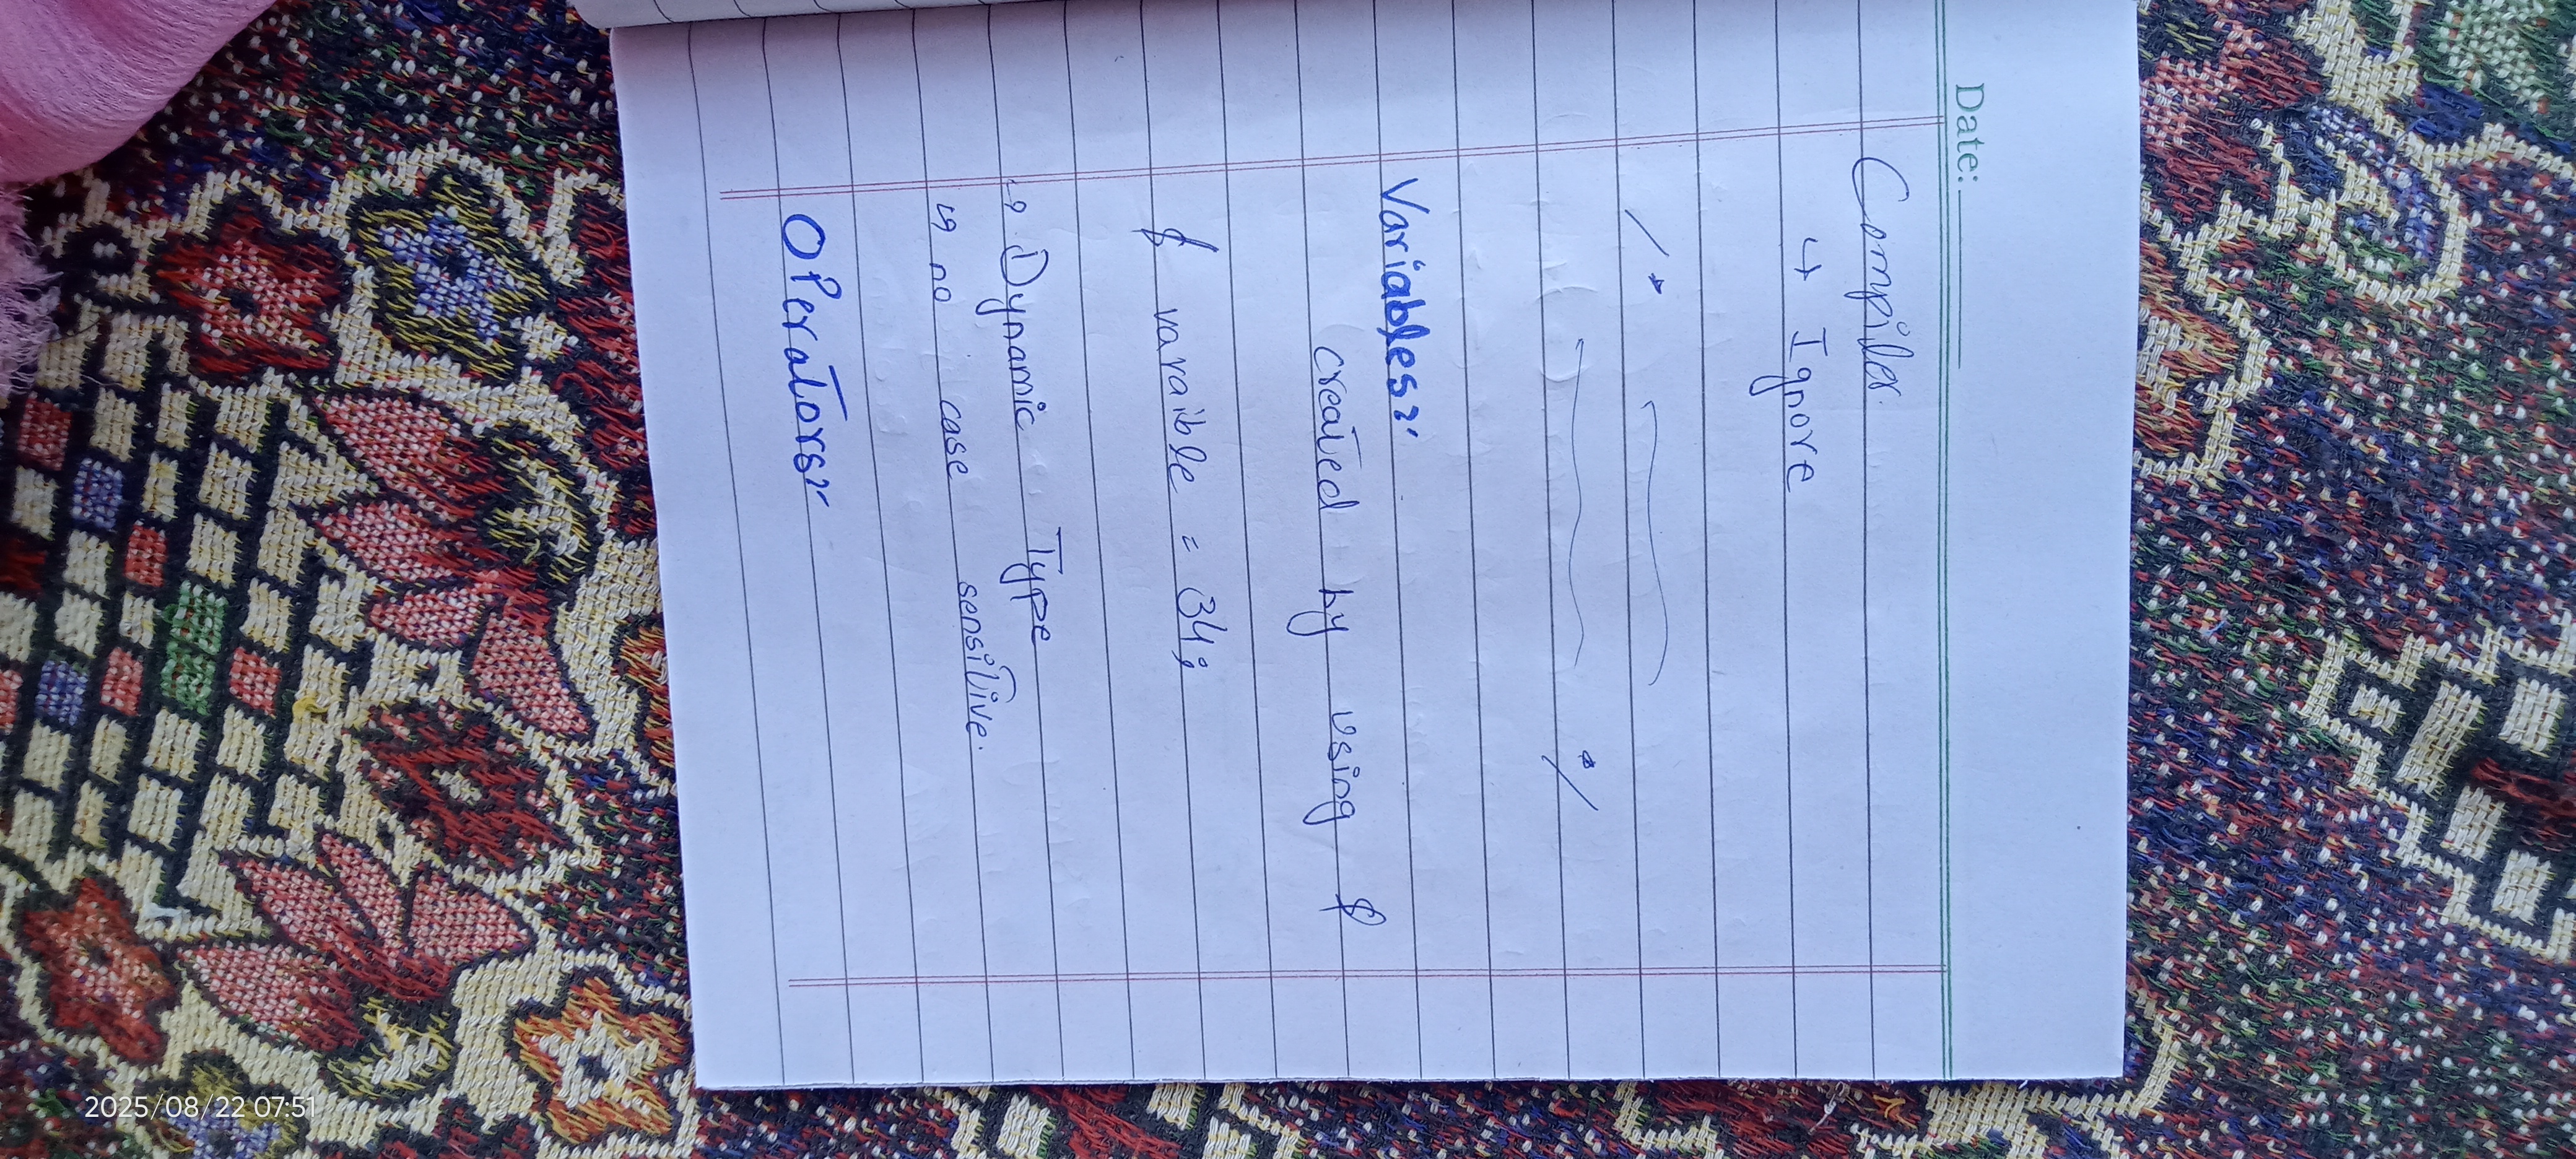 Date:
Compiler
↳ Ignore
/*
*/
Variables:-
created by using $
$ varaible = 34;
↳ Dynamic Type
↳ no case sensitive.
Operators:-
2025/08/22 07:51